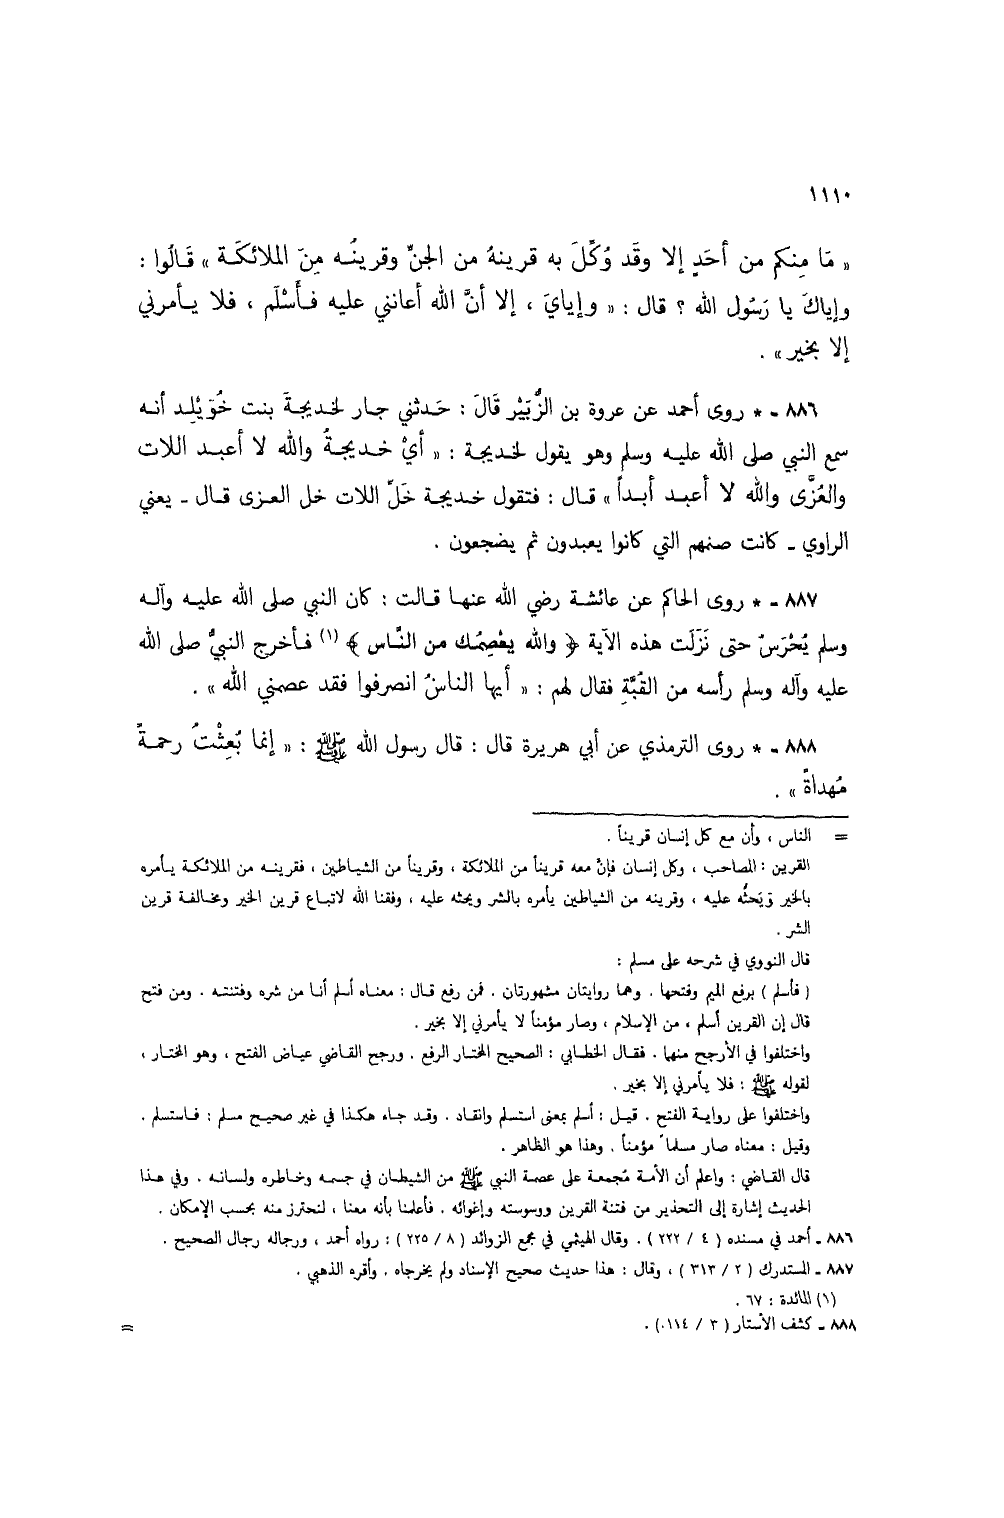 ١١١٠
« مَا مِنكم من أحَدٍ إلا وقَد وُكِّلَ به قرينهُ من الجنِّ وقرينُـه مِنَ الملائكَـة » قَـالُوا :
وإياكَ يا رَسُول الله ؟ قال : « وإيايَ ، إلا أنَّ الله أعانني عليه فـأَسْلَم ، فلا يـأمرني
إلا بخير » .
٨٨٦ ـ * روى أحمد عن عروة بن الزُّبَيْر قَالَ : حَدثني جـار لخديجـةَ بنت خُوَيْلِد أنـه
سمع النبي صلى الله عليـه وسلم وهو يقول لخديجة : « أيْ خـديجةُ والله لا أعبـد اللات
والعُزَّى والله لا أعبـد أبـداً » قـال : فتقول خـديجـة خَلِّ اللات خل العـزى قـال ـ يعني
الراوي ـ كانت صنمهم التي كانوا يعبدون ثم يضجعون .
٨٨٧ ـ * روى الحاكم عن عائشـة رضي الله عنهـا قـالت : كان النبي صلى الله عليـه وآلـه
وسلم يُحْرَسُ حتى نَزَلَت هذه الآية ﴿ والله يعْصِمُـك من النَّـاس ﴾ (١) فـأخرج النبيُّ صلى الله
عليه وآله وسلم رأسه من القُبَّةِ فقال لهم : « أيها الناسُ انصرفوا فقد عصمني الله » .
٨٨٨ ـ * روى الترمذي عن أبي هريرة قال : قال رسول الله ﷺ : « إنما بُعِثْتُ رحمـةً
مُهداةً » .
= الناس ، وأن مع كل إنسان قريناً .
القرين : المصاحب ، وكل إنسان فإنَّ معه قريناً من الملائكة ، وقريناً من الشيـاطين ، فقرينـه من الملائكـة يـأمره
بالخير وَيَحثُّه عليه ، وقرينه من الشياطين يأمره بالشر ويحثه عليه ، وفقنا الله لاتبـاع قرين الخير ومخـالفـة قرين
الشر .
قال النووي في شرحه على مسلم :
( فأسلم ) برفع الميم وفتحها . وهما روايتان مشهورتان . فمن رفع قـال : معنـاه أسلم أنـا من شره وفتنتـه . ومن فتح
قال إن القرين أسلم ، من الإسلام ، وصار مؤمناً لا يأمرني إلا بخير .
واختلفوا في الأرجح منهـا . فقـال الخطـابي : الصحيح المختـار الرفع . ورجح القـاضي عيـاض الفتح ، وهو المختـار ،
لقوله ﷺ : فلا يأمرني إلا بخير .
واختلفوا على روايـة الفتح . قيـل : أسلم بمعنى استسلم وانقـاد . وقـد جاء هكـذا في غير صحيـح مسلم : فـاستسلم .
وقيل : معناه صار مسلماً مؤمناً . وهذا هو الظاهر .
قال القـاضي : واعلم أن الأمـة مُجمعة على عصمة النبي ﷺ من الشيطـان في جسمـه وخـاطره ولسانـه . وفي هـذا
الحديث إشارة إلى التحذير من فتنة القرين ووسوسته وإغوائه . فأعلمنا بأنه معنا ، لنحترز منه بحسب الإمكان .
٨٨٦ ـ أحمد في مسنده ( ٤ / ٢٢٢ ) . وقال الهيثمي في مجمع الزوائد ( ٨ / ٢٢٥ ) : رواه أحمد ، ورجاله رجال الصحيح .
٨٨٧ ـ المستدرك ( ٢ / ٣١٣ ) ، وقال : هذا حديث صحيح الإسناد ولم يخرجاه . وأقره الذهبي .
(١) المائدة : ٦٧ .
٨٨٨ ـ كشف الأستار ( ٣ / ١١٤٠) . =